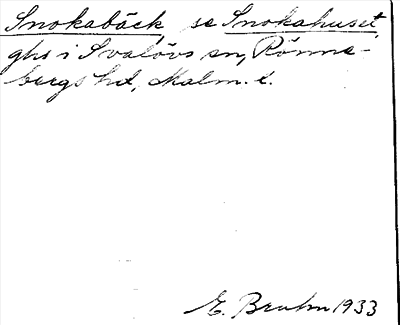 Snokabäck se Snokahuset,
ghs i Svalövs sn, Rönne-
bergs hd, Malm. l.
E. Bruhn 1933